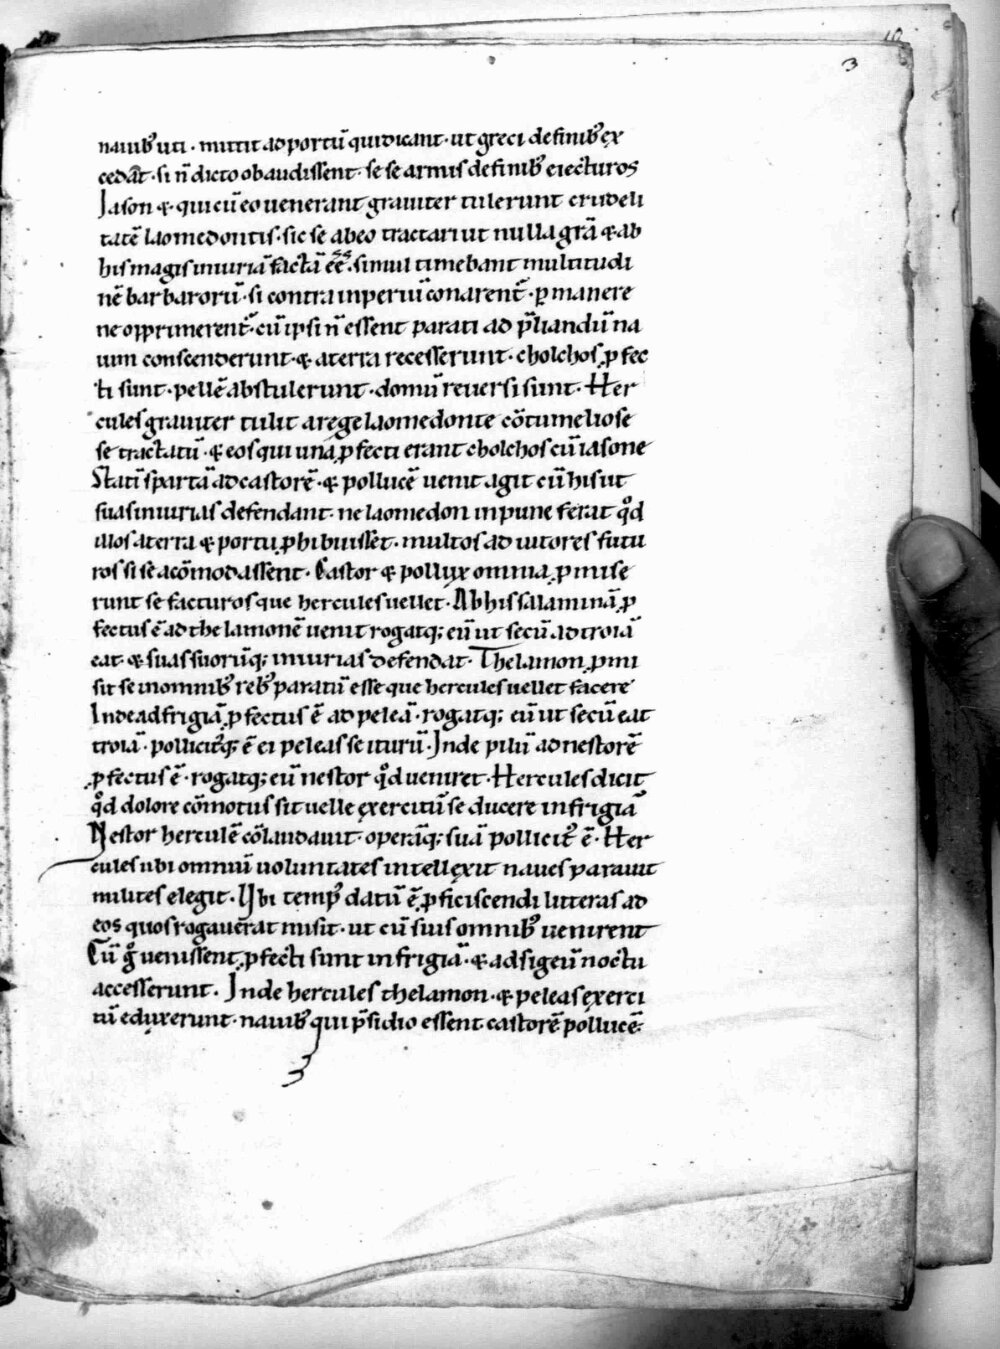 10
3
nauibꝰ uti · mittit ad portū qui dicant · ut greci de finibꝰ ex
cedāt · si n̄ dicto obaudissent · se se armis de finibꝰ eiecturos
Jason & qui cū eo uenerant grauiter tulerunt crudeli
tatē laomedontis · sic se ab eo tractari ut nulla grā & ab
his magis iniuriā factā eē · simul timebant multitudi
nē barbarorū · si contra inperiū conarent̄ · ꝑmanere
ne opprimerent̄ · cū ipsi n̄ essent parati ad p̄liandū na
uim conscenderunt · & a terra recesserunt · cholchos ꝓfec
ti sunt · pellē abstulerunt · domū reuersi sunt · Her
cules grauiter tulit a rege laomedonte cōtumeliose
se tractatū · & eos qui una ꝓfecti erant cholchos cū iasone
Statī spartā ad castorē · & pollucē uenit agit cū his ut
suas iniurias defendant · ne laomedon inpune ferat qd̊
illos a terra & portu ꝓhibuisset · multos adiutores futu
ros si se acōmodassent · Castor & pollux omnia ꝓmise
runt se facturos que hercules uellet · Ab his salaminā ꝓ
fectus ē ad thelamonē uenit rogatq; eū ut secū ad troiā
eat · & suas suorūq; iniurias defendat · Thelamon ꝓmi
sit se in omnibꝰ rebꝰ paratū esse que hercules uellet facere
Inde ad frigiā ꝓfectus ē ad peleā · rogatq; eū ut secū eat
troiā · pollicitꝰq; ē ei peleas se iturū · Inde pilū ad nestorē
ꝓfectus ē · rogatq; eū nestor qd̊ ueniret · Hercules dicit
qd̊ dolore cōmotus sit uelle exercitū se ducere in frigiā
Nestor herculē cōlaudauit · operāq; suā pollicitꝰ ē · Her
cules ubi omniū uoluntates intellexit naues parauit
milites elegit · Ubi tempꝰ datū ē ꝓficiscendi litteras ad
eos quos rogauerat misit · ut cū suis omnibꝰ uenirent
Cū g̊ uenissent ꝓfecti sunt in frigiā · & ad sigeū noctu
accesserunt · Inde hercules thelamon · & peleas exerci
tū eduxerunt · nauibꝰ qui p̄sidio essent castorē pollucē ·